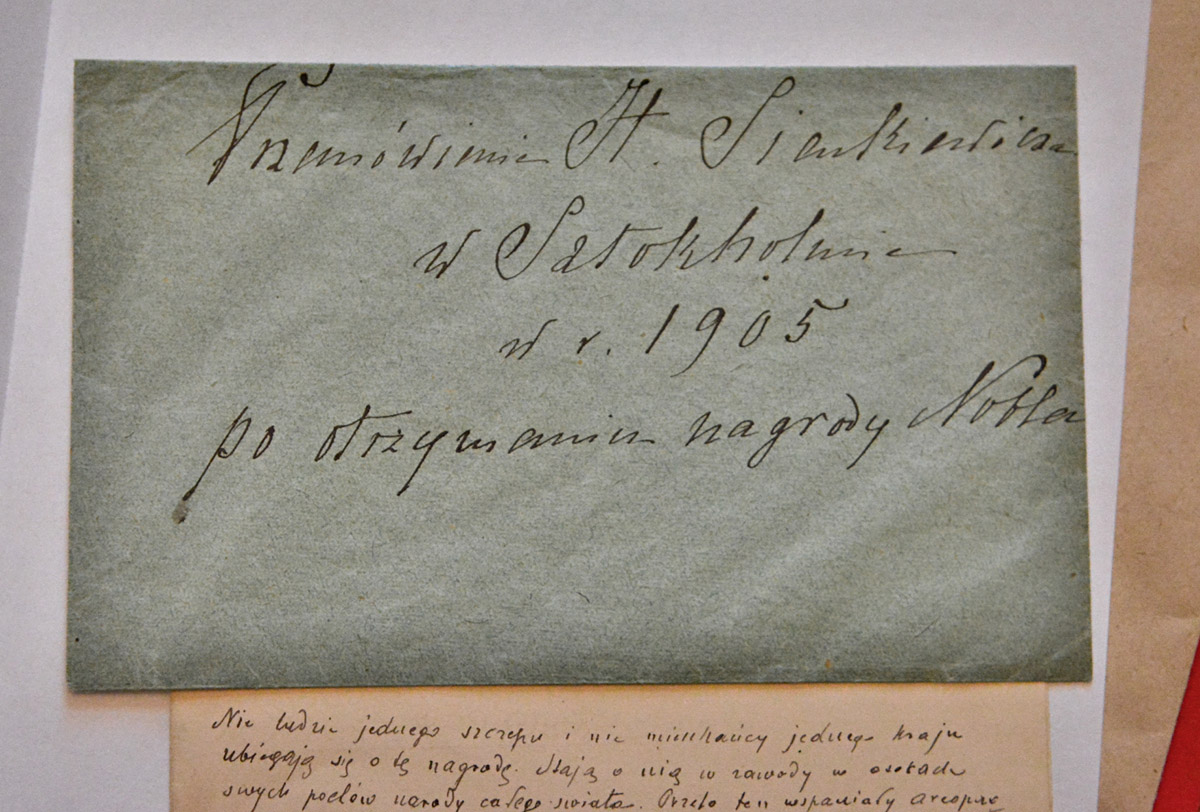 Przemówienie H. Sienkiewicza
w Sztokholmie
w r. 1905
po otrzymaniu nagrody Nobla
Nie ludzie jednego szczepu i nie mieszkańcy jednego kraju
ubiegają się o tę nagrodę. Stają o nią w zawody w osobach
swych poetów narody całego świata. Przeto ten wspaniały areopag